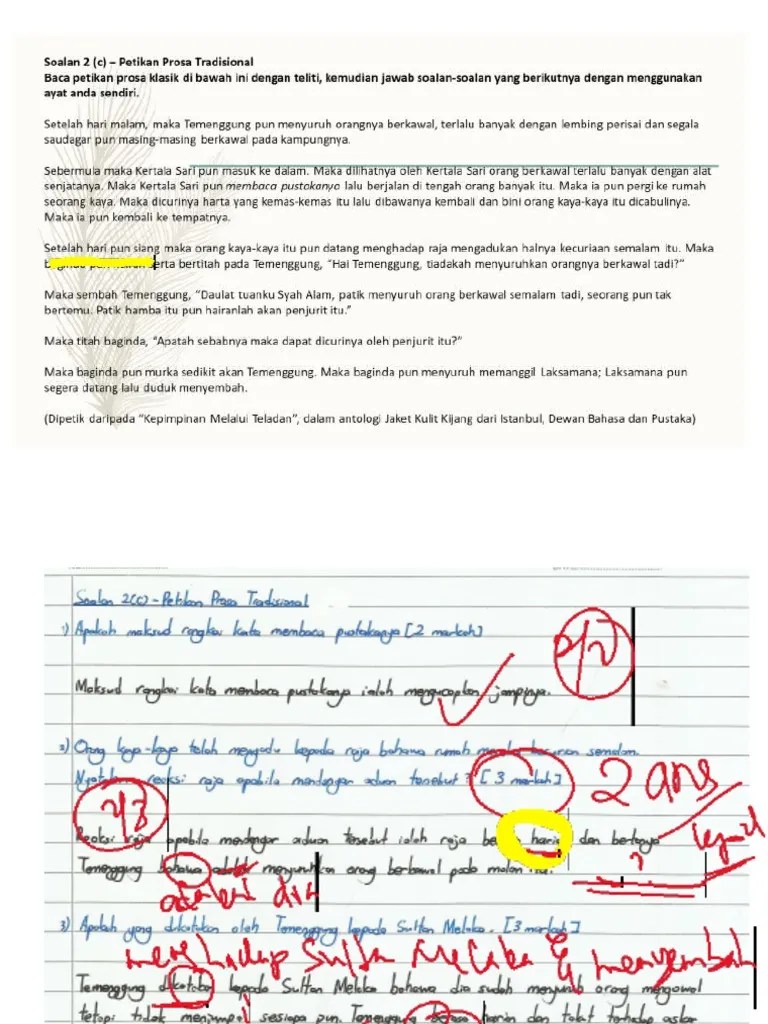 Soalan 2 (c) – Petikan Prosa Tradisional
Baca petikan prosa klasik di bawah ini dengan teliti, kemudian jawab soalan-soalan yang berikutnya dengan menggunakan
ayat anda sendiri.
Setelah hari malam, maka Temenggung pun menyuruh orangnya berkawal, terlalu banyak dengan lembing perisai dan segala
saudagar pun masing-masing berkawal pada kampungnya.
Sebermula maka Kertala Sari pun masuk ke dalam. Maka dilihatnya oleh Kertala Sari orang berkawal terlalu banyak dengan alat
senjatanya. Maka Kertala Sari pun membaca pustakanya lalu berjalan di tengah orang banyak itu. Maka ia pun pergi ke rumah
seorang kaya. Maka dicurinya harta yang kemas-kemas itu lalu dibawanya kembali dan bini orang kaya-kaya itu dicabulinya.
Maka ia pun kembali ke tempatnya.
Setelah hari pun siang maka orang kaya-kaya itu pun datang menghadap raja mengadukan halnya kecurian semalam itu. Maka
serta bertitah pada Temenggung, “Hai Temenggung, tiadakah menyuruhkan orangnya berkawal tadi?”
Maka sembah Temenggung, “Daulat tuanku Syah Alam, patik menyuruh orang berkawal semalam tadi, seorang pun tak
bertemu. Patik hamba itu pun hairanlah akan penjurit itu.”
Maka titah baginda, “Apatah sebabnya maka dapat dicurinya oleh penjurit itu?”
Maka baginda pun murka sedikit akan Temenggung. Maka baginda pun menyuruh memanggil Laksamana; Laksamana pun
segera datang lalu duduk menyembah.
(Dipetik daripada “Kepimpinan Melalui Teladan”, dalam antologi Jaket Kulit Kijang dari Istanbul, Dewan Bahasa dan Pustaka)
Soalan 2(c) - Petikan Prosa Tradisional
1) Apakah maksud rangkai kata membaca pustakanya [2 markah]
2/2
Maksud rangkai kata membaca pustakanya ialah mengucapkan jampinya.
2) Orang kaya-kaya telah mengadu kepada raja bahawa rumah kecurian semalam.
Nyatakan reaksi raja apabila mendengar aduan tersebut? [3 markah]
2 ans
2/3
Reaksi raja apabila mendengar aduan tersebut ialah raja hairan dan bertanya
Temenggung bahawa adakah menyuruhkan orang berkawal pada malam itu.
?
3) Apakah yang dikatakan oleh Temenggung kepada Sultan Melaka. [3 markah]
menghadap Sultan Melaka & menyembah
Temenggung dikatakan kepada Sultan Melaka bahawa dia sudah menyuruh orang mengawal
tetapi tidak menjumpai sesiapa pun. Temenggung hairan dan takut terhadap